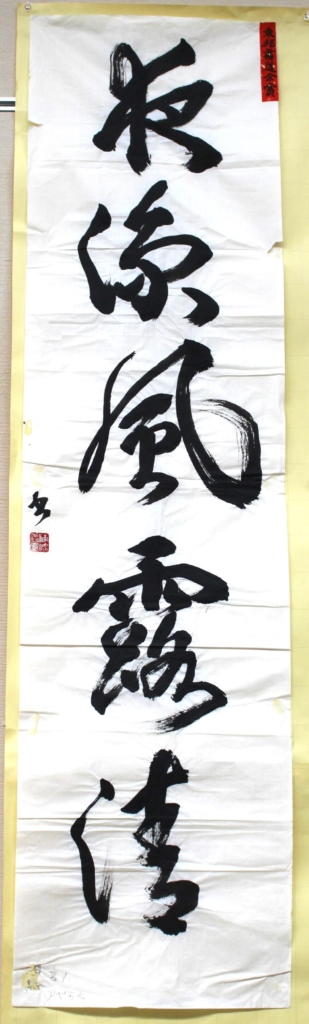 夜涼風露清